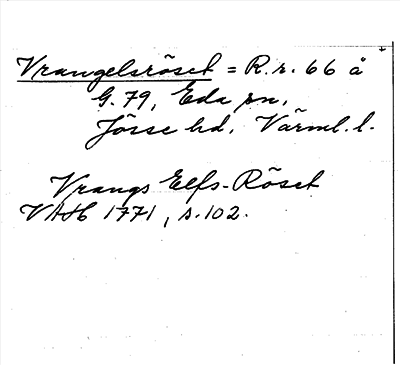 Vrangelsröset = R.r. 66 å
G. 79, Eda sn,
Jösse hd, Värml. l.
Vrangs Elfs-Röset
VAH 1771, s. 102.